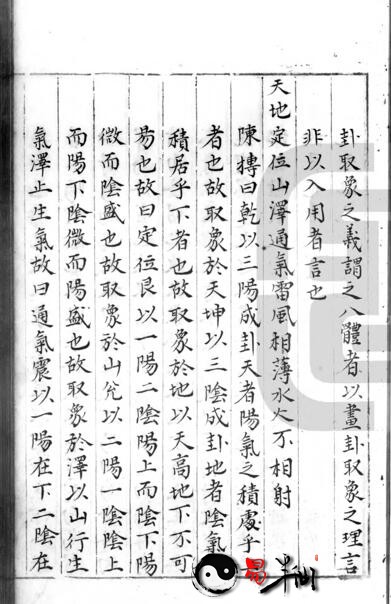 卦取象之義謂之八體者以畫卦取象之理言
非以入用者言也
天地定位山澤通氣雷風相薄水火不相射
陳摶曰乾以三陽成卦天者陽氣之積處乎上
者也故取象於天坤以三陰成卦地者陰氣
積居乎下者也故取象於地以天高地下不可
易也故曰定位艮以一陽二陰陽上而陰下陽
微而陰盛也故取象於山兊以二陽一陰陰上
而陽下陰微而陽盛也故取象於澤以山行生
氣澤止生氣故曰通氣震以一陽在下二陰在
易半仙